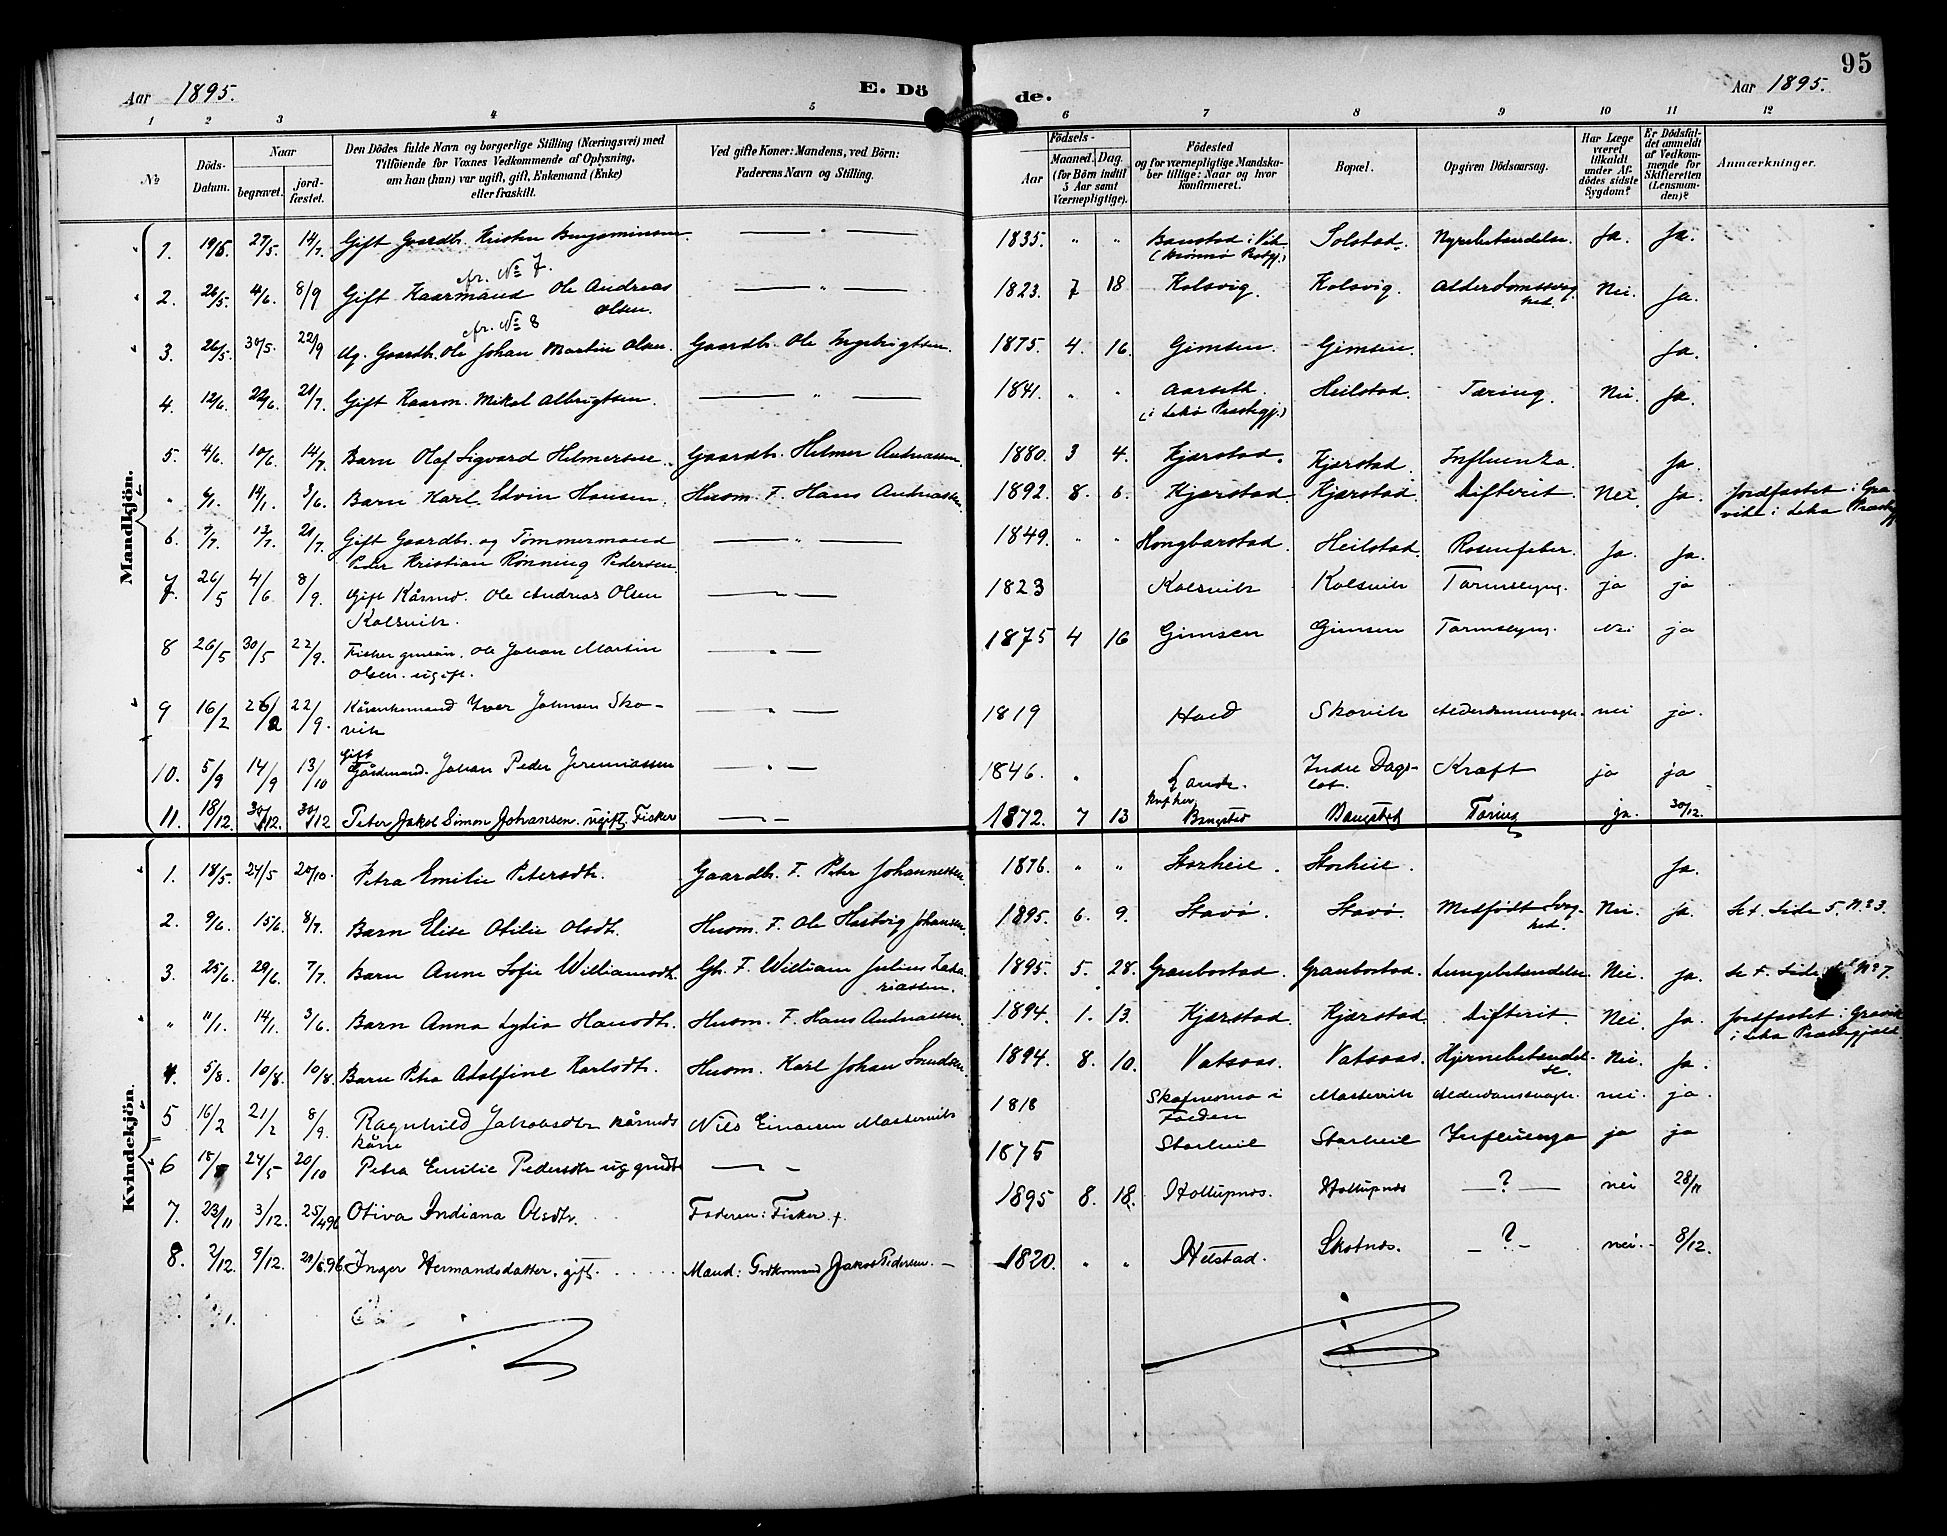 95
Aar 1895.
E. Dö
de.
Aar 1895.
1 2 3 4 5 6 7 8 9 10 11 12
№
Döds-Datum.
Naar
begravet.
jordfæstet.
Den Dödes fulde Navn og borgerlige Stilling (Næringsvei) med
Tilföiende for Voxnes Vedkommende af Oplysning,
om han (hun) var ugift, gift, Enkemand (Enke)
eller fraskilt.
Ved gifte Koner: Mandens, ved Börn:
Faderens Navn og Stilling.
Födsels-
Aar
Maaned. Dag.
(for Börn indtil
5 Aar samt
Værnepligtige).
Födested
og for værnepligtige Mandska-
ber tillige: Naar og hvor
konfirmeret.
Bopæl.
Opgiven Dödsaarsag.
Har Læge
været
tilkaldt
under Af-
dödes sidste
Sygdom?
Er Dödsfal-
det anmeldt
af Vedkom-
mende for
Skifteretten
(Lensman-
den)?
Anmærkninger.
Mandkjön.
1. 19/5 27/5. 14/7. Gift Gaardb. Kristen Benjaminsen. — " — 1835. " " Solstad. Nyrebetændelse. Ja. Ja.
cfr. № 7.
2. 26/5. 4/6. 8/9 Gift Kaarmand Ole Andreas Olsen. — " — 1823. 7 18 Kolsvig. Kolsvig. Alderdomssvaghed. Nei. Ja.
cfr. № 8
3. 26/5. 30/5. 22/9 Ug. Gaardb. Ole Johan Martin Olsen. Gaardb. Ole Ingebrigtsen. 1875. 4. 16. Gimsen. Gimsen. Ja.
4. 12/6. 22/6. 21/7. Gift Kaarm. Mikal Albrigtsen. — " — 1841. " " Aarseth. (i Lekø Præstegj.) Heilstad. Tæring. Nei. Ja.
5. 4/6. 10/6. 14/7. Barn Olaf Sigvard Helmersen. Gaardb. Helmer Andreassen. 1880. 3 4. Kjærstad. Kjærstad. Influenza. Ja.
" 6/1. 14/1. 3/6. Barn Karl Edvin Hansen. Husm. F. Hans Andreassen. 1892. 8. 6. Kjærstad. Kjærstad. Difterit. Nei. Ja. Jordfæstet i Gravik i Leka Præstegj.
6. 7/7. 13/7. 21/7. Gift Gaardb. og Tømmermand Peder Kristian Rönning Pedersen. — " — 1849. " " Hongbarstad. Heilstad. Rosenfeber. Ja. Ja.
7. 26/5 4/6 8/9. Gift Kårmd. Ole Andreas Olsen Kolsvik. — — 1823 Kolsvik Kolsvik Tarmslyng. ja ja
8 26/5 30/5 22/9. Fisker Ole Johan Martin Olsen. ugift. — " — 1875 4 16 Gimsen Gimsen Tarmslyng. Nei ja
9 16/2 26/2 22/9. Kårenkemand Iver Johnsen Skovik — " — 1819 Horn Skovik Alderdomssvagh. nei ja.
10. 5/9 14/9 13/10 Gift Gårdmand. Johan Peder Jeremiassen — " — 1846. " Indre Dagslet. Kræft ja ja
11. 18/12. 30/12. 30/12 Peter Jakob Simon Johansen. ugift. Fisker — — 1872. 7 13 Bangstad Bangstad Tæring ja. 30/12.
Kvindekjön.
1. 18/5. 24/5 20/10. Petra Emilie Petersdtr. Gaardb. F. Peter Johannessen. 1876. " " Storheil. Storheil. Ja.
2. 9/6. 15/6. 8/7. Barn Elise Otilie Olsdtr. Husm. F. Ole Hartvig Johansen. 1895. 6. 9. Stavø. Stavø. Medfödt Svaghed. Nei. Ja. Se t. Side 5, N: 3.
3. 25/6. 29/6. 7/7. Barn Anne Sofie Williamsdtr. Gb. F. William Julius Zakariassen. 1895. 5. 28. Granbostad. Granbostad. Lungebetændelse. Nei. Ja. Se t. Side N: 7.
" 11/1. 14/1. 3/6. Barn Anna Lydia Hansdtr. Husm. F. Hans Andreassen. 1894. 1. 13. Kjærstad. Kjærstad. Difterit. Nei. Ja. Jordfæstet i Gravik i Leka Præstegjeld.
4. 5/8. 10/8. 10/8. Barn Petra Adolfine Karlsdtr. Husm. Karl Johan 1894. 8. 10. Vatsaas. Vatsaas. Hjernebetændelse. Nei. Ja.
5 16/2 21/2 8/9. Ragnhild Jakobsdtr kårmds kåne Nils Einarsen Martervik 1818 i Folden Martervik Alderdomssvagh. nei. ja.
6 18/5 24/5 20/10 Petra Emilie Pedersdtr ug gmdt — — 1875 Storheil Storheil Influenza ja ja
7. 23/11 3/12. 25/4 96 Otiva Indiana Olsdtr. Faderen: Fisker 1895 8. 18. Holtupnæs. Holtupnæs — ? — nei 28/11
8. 2/12. 9/12. 21/6. 96 Inger Hermandsdatter, gift. Mand: Jakob Pedersen. — 1820. " " Helstad. Skotnes. — ? — nei. 8/12.